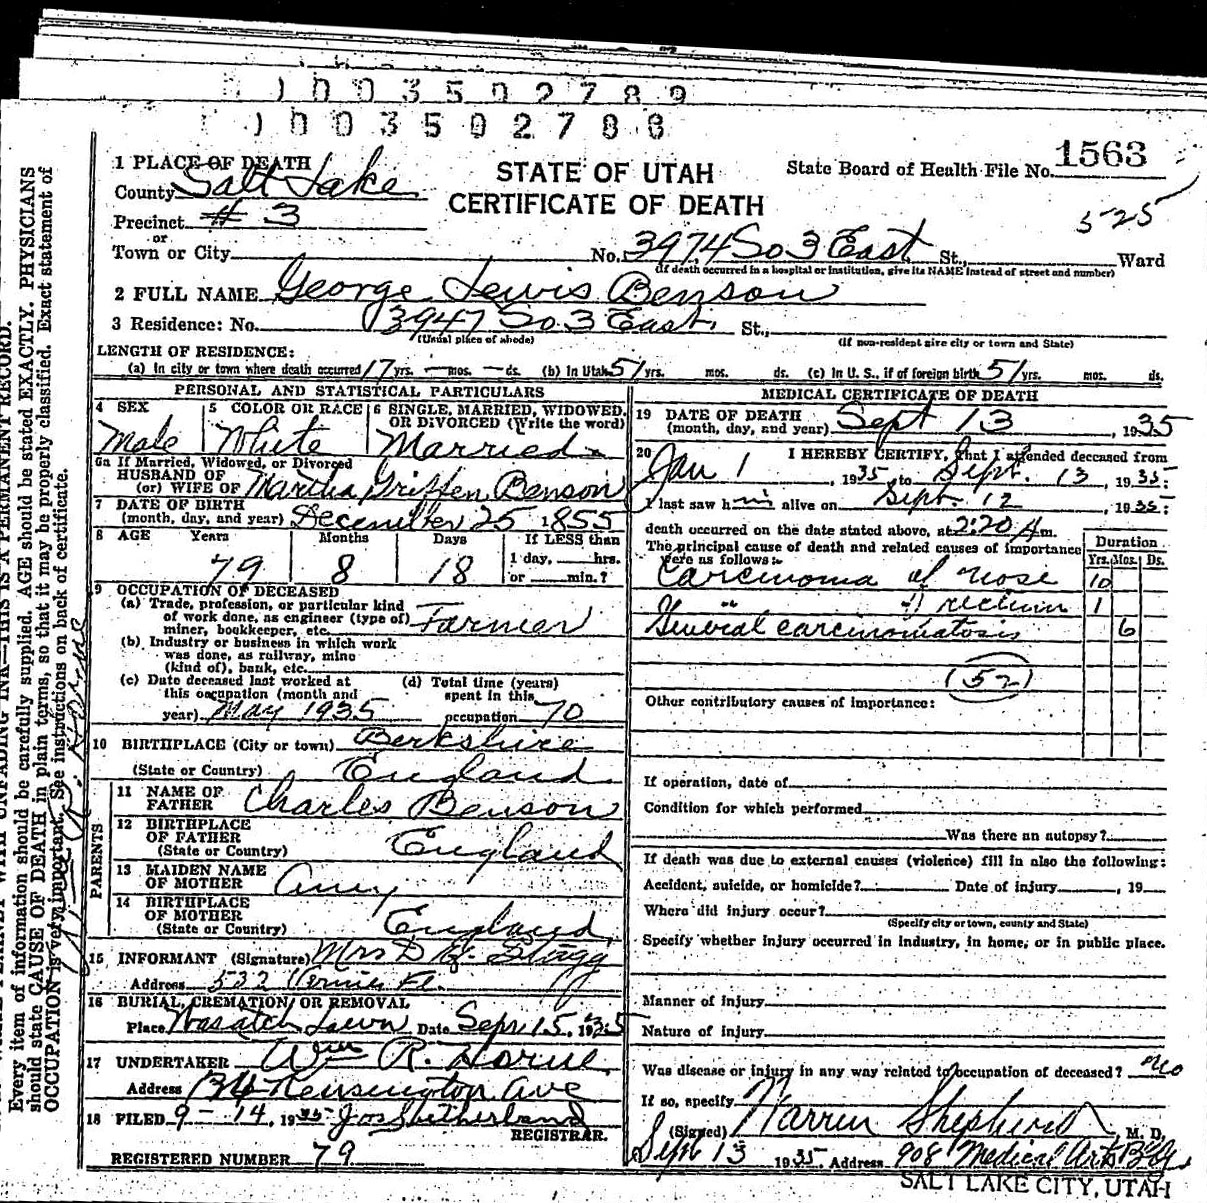 0 0 3 5 0 2 7 8 9
0 0 3 5 0 2 7 8 8
1 PLACE OF DEATH
STATE OF UTAH
CERTIFICATE OF DEATH
State Board of Health File No. 1563
525
County Salt Lake
Precinct # 3
or
Town or City No. 3974 So 3 East St., Ward
(If death occurred in a hospital or institution, give its NAME instead of street and number)
2 FULL NAME George Lewis Benson
3 Residence: No. 3947 So. 3 East. St.,
(Usual place of abode) (If non-resident give city or town and State)
LENGTH OF RESIDENCE:
(a) In city or town where death occurred 17 yrs. — mos. — ds. (b) In Utah 51 yrs. mos. ds. (c) In U. S., if of foreign birth 51 yrs. mos. ds.
PERSONAL AND STATISTICAL PARTICULARS
4 SEX Male
5 COLOR OR RACE White
6 SINGLE, MARRIED, WIDOWED, OR DIVORCED (Write the word) Married
6a If Married, Widowed, or Divorced
HUSBAND OF
(or) WIFE OF Martha Griffen Benson
7 DATE OF BIRTH
(month, day, and year) December 25 1855
8 AGE Years Months Days If LESS than
1 day, hrs.
79 8 18 or min.?
9 OCCUPATION OF DECEASED
(a) Trade, profession, or particular kind
of work done, as engineer (type of)
miner, bookkeeper, etc. Farmer
(b) Industry or business in which work
was done, as railway, mine
(kind of), bank, etc.
(c) Date deceased last worked at
this occupation (month and
year) May 1935
(d) Total time (years)
spent in this
occupation 70
10 BIRTHPLACE (City or town) Berkshire
(State or Country) England
PARENTS
11 NAME OF
FATHER Charles Benson
12 BIRTHPLACE
OF FATHER
(State or Country) England
13 MAIDEN NAME
OF MOTHER Amy
14 BIRTHPLACE
OF MOTHER
(State or Country) England
15 INFORMANT (Signature) Mrs D Stagg
Address 532
16 BURIAL, CREMATION, OR REMOVAL
Place Wasatch Lawn Date Sept 15, 1935
17 UNDERTAKER Wm R. Horne
Address Kensington Ave
18 FILED 9-14, 1935 Jos Sutherland
REGISTRAR.
REGISTERED NUMBER 79
MEDICAL CERTIFICATE OF DEATH
19 DATE OF DEATH
(month, day, and year) Sept 13, 1935
20 I HEREBY CERTIFY, that I attended deceased from
Jan 1, 1935, to Sept. 13, 1935:
I last saw him alive on Sept. 12, 1935:
death occurred on the date stated above, at 2:20 Am.
The principal cause of death and related causes of importance
were as follows:
Duration
Yrs. Mos. Ds.
Carcinoma of nose 10
" " rectum 1
General carcinomatosis 6
(52)
Other contributory causes of importance:
If operation, date of
Condition for which performed
Was there an autopsy?
If death was due to external causes (violence) fill in also the following:
Accident, suicide, or homicide? Date of injury , 19
Where did injury occur?
(Specify city or town, county and State)
Specify whether injury occurred in industry, in home, or in public place.
Manner of injury
Nature of injury
Was disease or injury in any way related to occupation of deceased? no
If so, specify
(Signed) Warren Shepherd, M. D.
Sept 13 1935. Address 908 Medical Arts Bldg
SALT LAKE CITY, UTAH
UNFADING INK—THIS IS A PERMANENT RECORD.
Every item of information should be carefully supplied. AGE should be stated EXACTLY. PHYSICIANS
should state CAUSE OF DEATH in plain terms, so that it may be properly classified. Exact statement of
OCCUPATION is very important. See instructions on back of certificate.